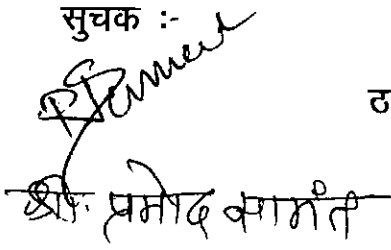 सुचक :-
ठ
श्री. प्रमोद सामंत